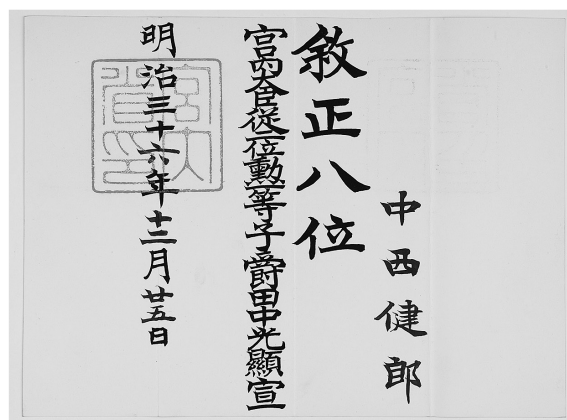 中西健郎
敘正八位
宮内大臣從二位勳一等子爵田中光顯宣
明治三十六年十二月廿五日
宮内省印